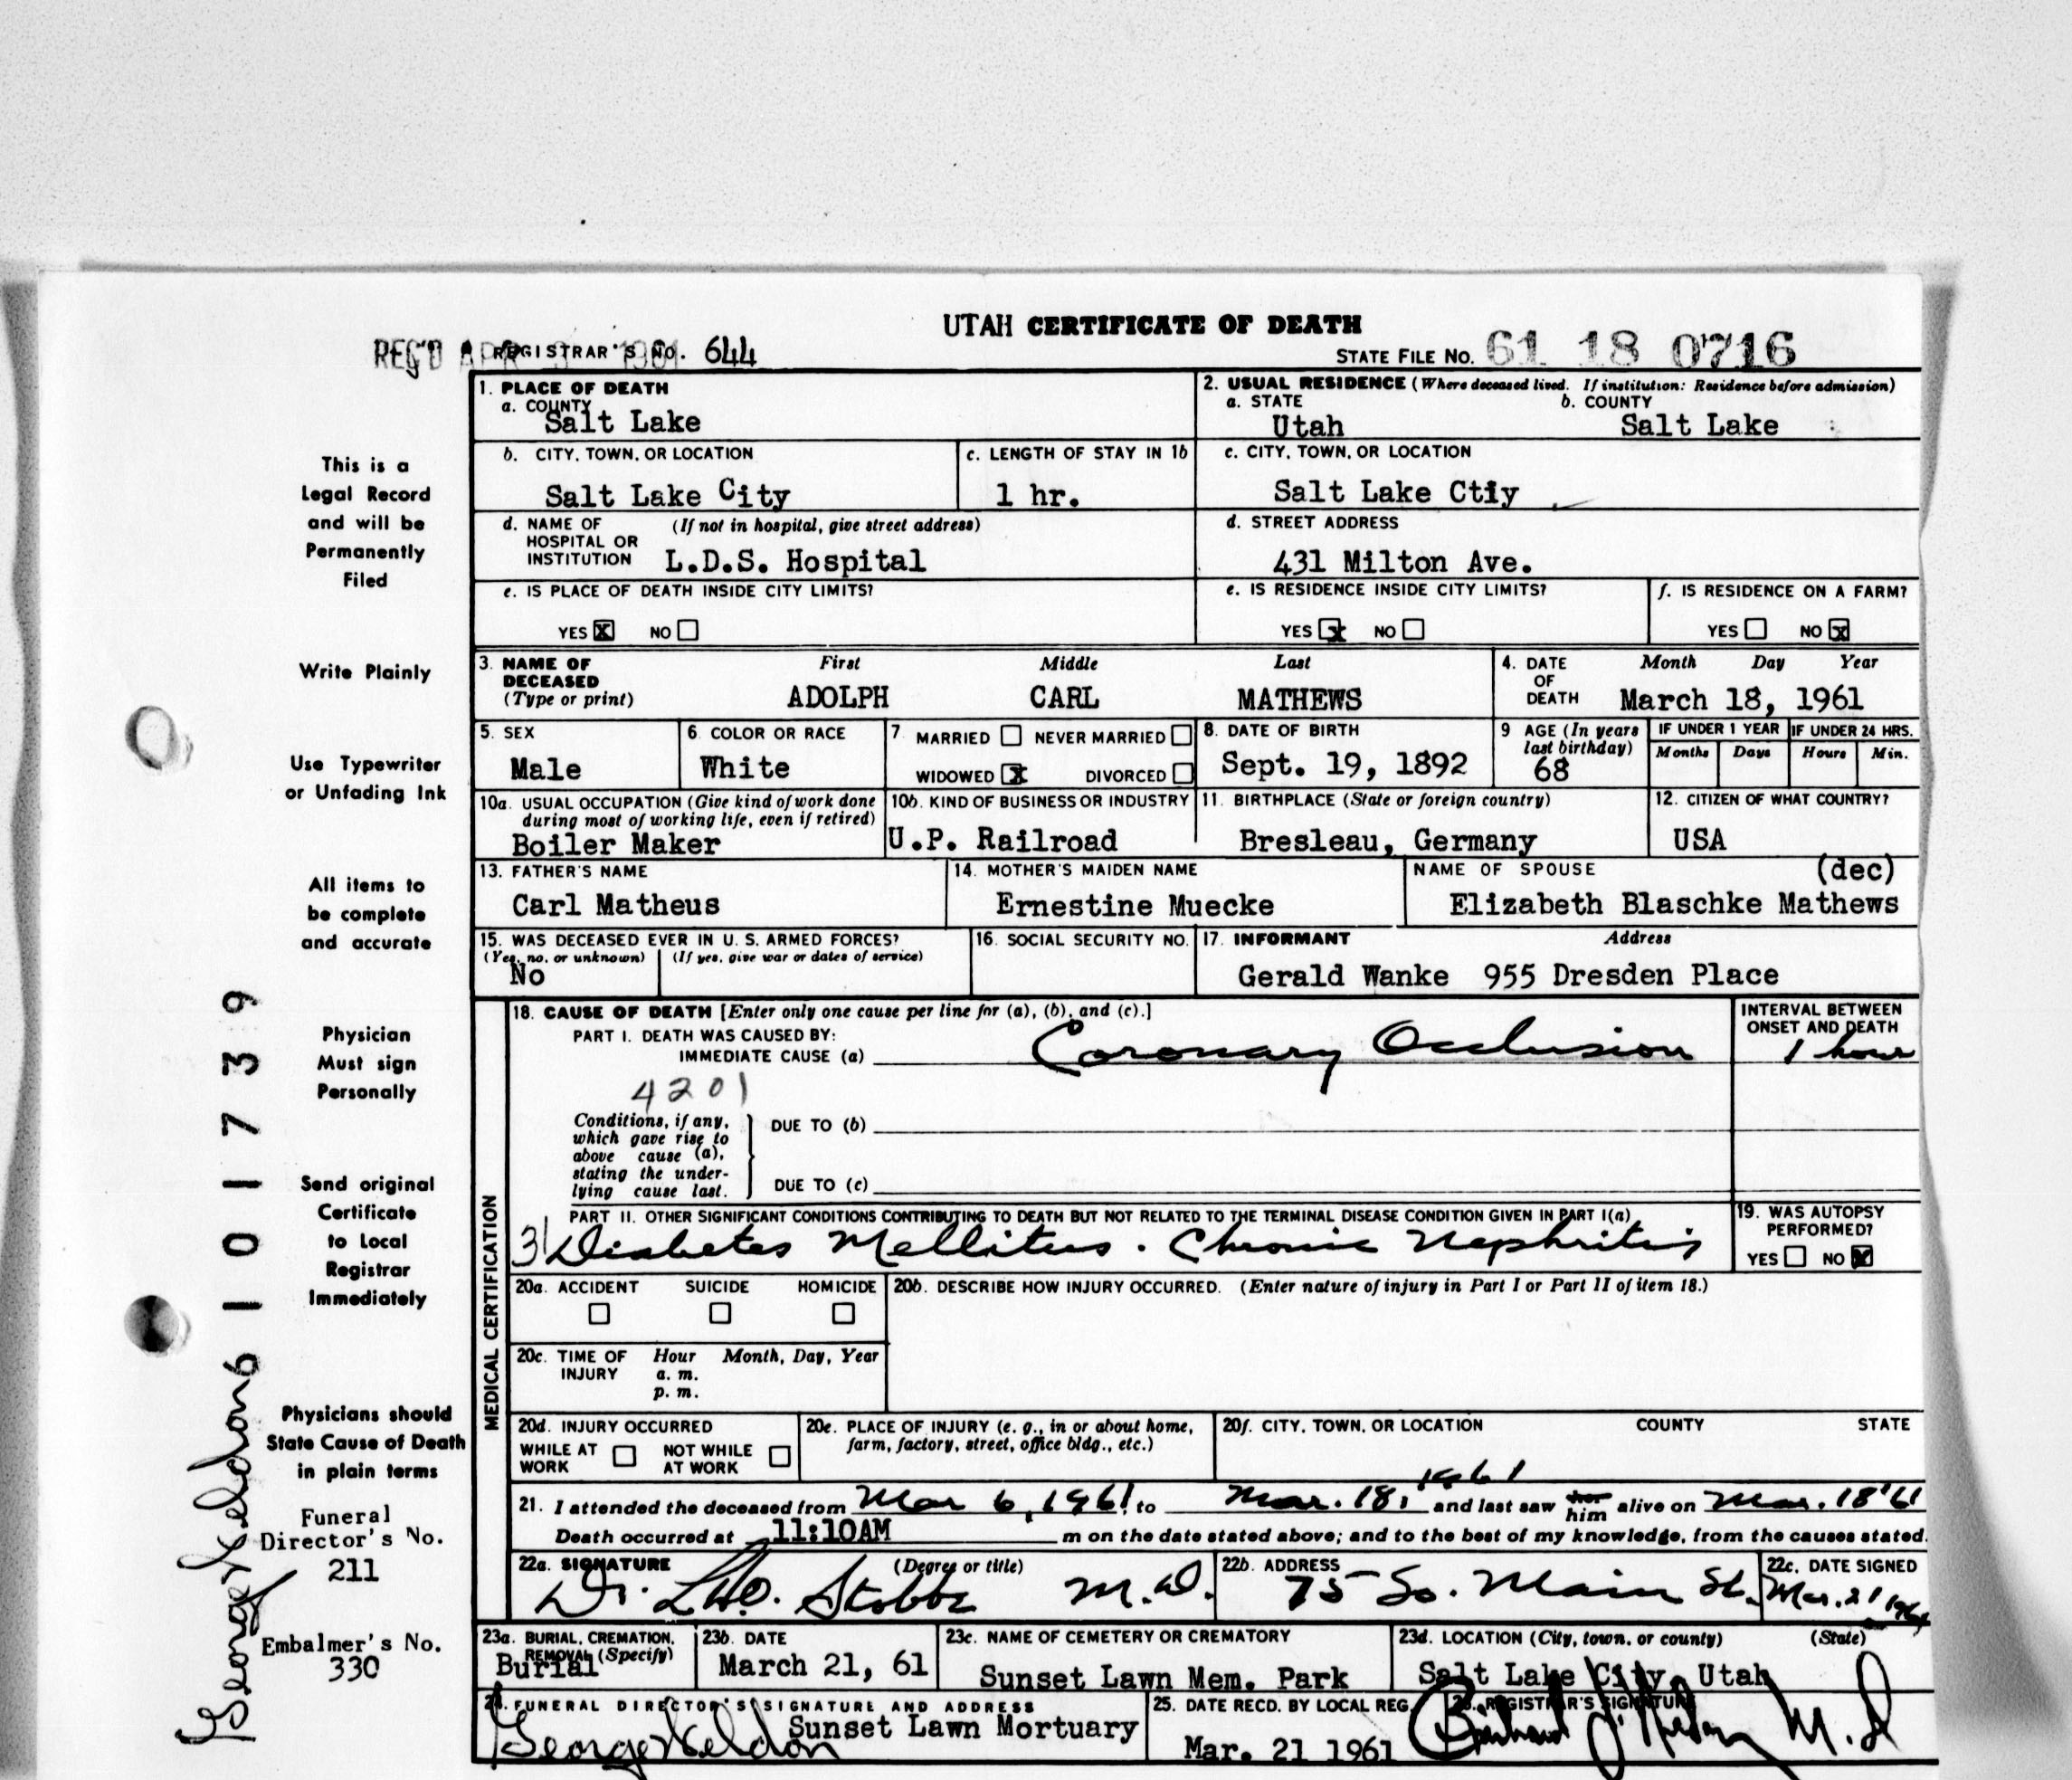 UTAH CERTIFICATE OF DEATH
REC'D APR 1961 REGISTRAR'S NO. 644
STATE FILE NO. 61 18 0716
1. PLACE OF DEATH
a. COUNTY
Salt Lake
2. USUAL RESIDENCE (Where deceased lived. If institution: Residence before admission)
a. STATE b. COUNTY
Utah Salt Lake
b. CITY, TOWN, OR LOCATION
Salt Lake City
c. LENGTH OF STAY IN 1b
1 hr.
c. CITY, TOWN, OR LOCATION
Salt Lake Ctiy
d. NAME OF HOSPITAL OR INSTITUTION (If not in hospital, give street address)
L.D.S. Hospital
d. STREET ADDRESS
431 Milton Ave.
e. IS PLACE OF DEATH INSIDE CITY LIMITS?
YES X NO
e. IS RESIDENCE INSIDE CITY LIMITS?
YES x NO
f. IS RESIDENCE ON A FARM?
YES NO x
3. NAME OF DECEASED (Type or print)
First Middle Last
ADOLPH CARL MATHEWS
4. DATE OF DEATH
Month Day Year
March 18, 1961
5. SEX
Male
6. COLOR OR RACE
White
7. MARRIED NEVER MARRIED
WIDOWED x DIVORCED
8. DATE OF BIRTH
Sept. 19, 1892
9 AGE (In years last birthday)
68
IF UNDER 1 YEAR
Months Days
IF UNDER 24 HRS.
Hours Min.
10a. USUAL OCCUPATION (Give kind of work done during most of working life, even if retired)
Boiler Maker
10b. KIND OF BUSINESS OR INDUSTRY
U.P. Railroad
11. BIRTHPLACE (State or foreign country)
Bresleau, Germany
12. CITIZEN OF WHAT COUNTRY?
USA
13. FATHER'S NAME
Carl Matheus
14. MOTHER'S MAIDEN NAME
Ernestine Muecke
NAME OF SPOUSE (dec)
Elizabeth Blaschke Mathews
15. WAS DECEASED EVER IN U. S. ARMED FORCES?
(Yes, no, or unknown) (If yes, give war or dates of service)
No
16. SOCIAL SECURITY NO.
17. INFORMANT Address
Gerald Wanke 955 Dresden Place
MEDICAL CERTIFICATION
18. CAUSE OF DEATH [Enter only one cause per line for (a), (b), and (c).]
PART I. DEATH WAS CAUSED BY:
IMMEDIATE CAUSE (a) Coronary Occlusion
INTERVAL BETWEEN ONSET AND DEATH
1 hour
4201
Conditions, if any, which gave rise to above cause (a), stating the underlying cause last.
DUE TO (b)
DUE TO (c)
PART II. OTHER SIGNIFICANT CONDITIONS CONTRIBUTING TO DEATH BUT NOT RELATED TO THE TERMINAL DISEASE CONDITION GIVEN IN PART I(a)
31 Diabetes Mellitus. Chronic Nephritis
19. WAS AUTOPSY PERFORMED?
YES NO X
20a. ACCIDENT SUICIDE HOMICIDE
20b. DESCRIBE HOW INJURY OCCURRED. (Enter nature of injury in Part I or Part II of item 18.)
20c. TIME OF INJURY Hour Month, Day, Year
a. m.
p. m.
20d. INJURY OCCURRED
WHILE AT WORK NOT WHILE AT WORK
20e. PLACE OF INJURY (e. g., in or about home, farm, factory, street, office bldg., etc.)
20f. CITY, TOWN, OR LOCATION COUNTY STATE
21. I attended the deceased from Mar 6, 1961 to Mar. 18, 1961 and last saw her him alive on Mar. 18 '61
Death occurred at 11:10AM m on the date stated above; and to the best of my knowledge, from the causes stated.
22a. SIGNATURE (Degree or title)
Dr. L.H.O. Stobbe M.D.
22b. ADDRESS
75 So. Main St.
22c. DATE SIGNED
Mar. 21 1961
23a. BURIAL, CREMATION, REMOVAL (Specify)
Burial
23b. DATE
March 21, 61
23c. NAME OF CEMETERY OR CREMATORY
Sunset Lawn Mem. Park
23d. LOCATION (City, town, or county) (State)
Salt Lake City, Utah
24. FUNERAL DIRECTOR'S SIGNATURE AND ADDRESS
George Weldon Sunset Lawn Mortuary
25. DATE RECD. BY LOCAL REG.
Mar. 21 1961
26. REGISTRAR'S SIGNATURE
M.D
This is a
Legal Record
and will be
Permanently
Filed
Write Plainly
Use Typewriter
or Unfading Ink
All items to
be complete
and accurate
Physician
Must sign
Personally
Send original
Certificate
to Local
Registrar
Immediately
Physicians should
State Cause of Death
in plain terms
Funeral
Director's No.
211
Embalmer's No.
330
George Weldon
6101739